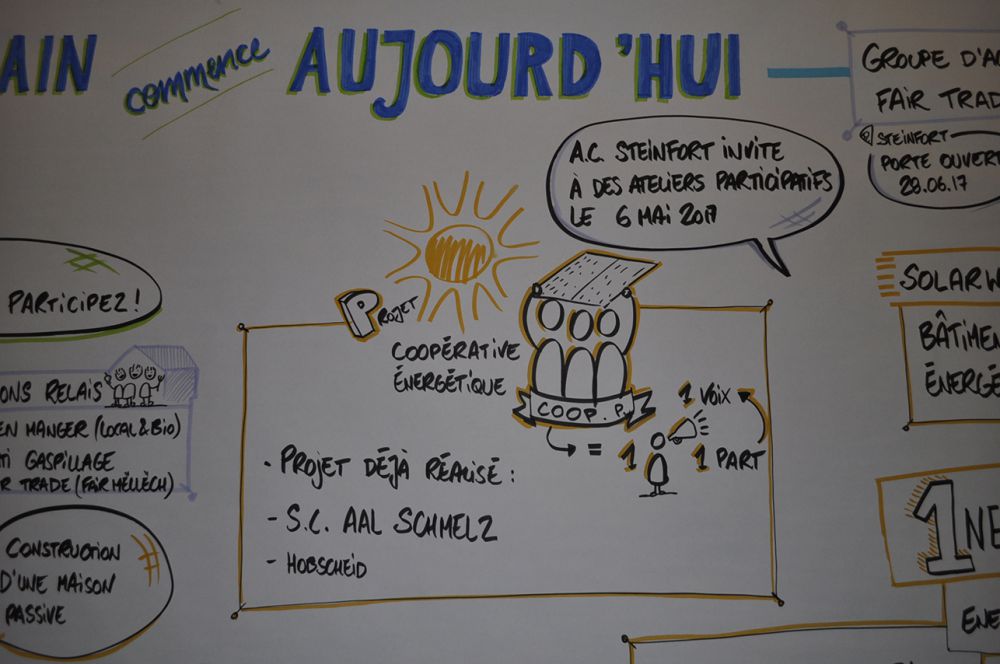 AIN commence AUJOURD'HUI
GROUPE D'A
FAIR TRAD
STEINFORT
PORTE OUVERT
29.06.17
A.C. STEINFORT INVITE
À DES ATELIERS PARTICIPATIFS
LE 6 MAI 2017
PARTICIPEZ !
ONS RELAIS
EN MANGER (LOCAL & BIO)
TI GASPILLAGE
R TRADE (FAIR MËLLÉCH)
CONSTRUCTION
D'UNE MAISON
PASSIVE
PROJET
COOPÉRATIVE
ÉNERGÉTIQUE
COOP.
1 VOIX
= 1 1 PART
- PROJET DÉJÀ RÉALISÉ :
- S.C. AAL SCHMELZ
- HOBSCHEID
SOLARW
BÂTIMEN
ÉNERGÉ
1 NE
ENE